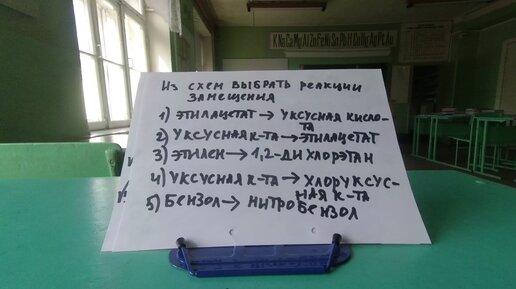 K Na Ca Mg Al Zn Fe Ni Sn Pb H Cu Hg Ag Pt Au
Из схем выбрать реакции
замещения
1) этилацетат → уксусная кисло-
та
2) уксусная к-та → этилацетат
3) этилен → 1,2-дихлорэтан
4) уксусная к-та → хлоруксус-
ная к-та
5) бензол → нитробензол